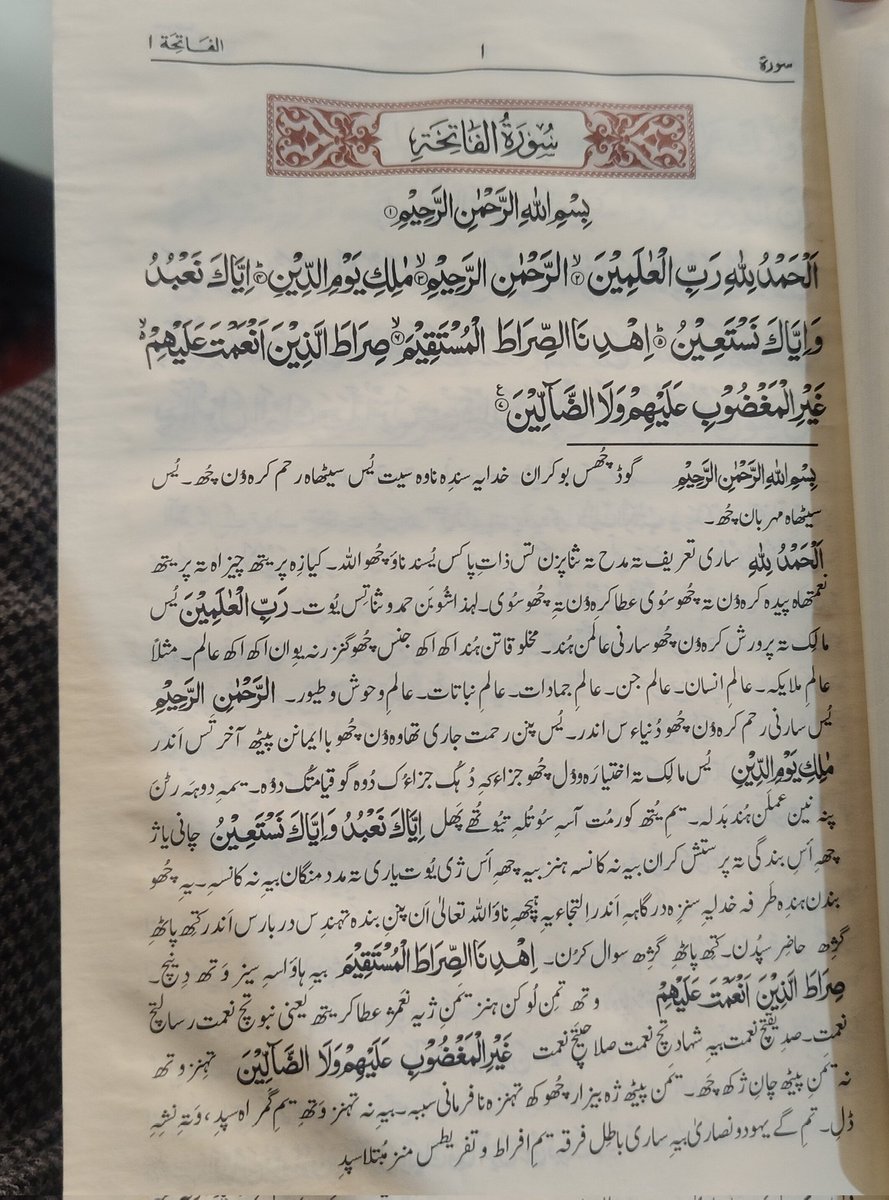 سورة ١ الفَاتِحَة ١
سُوْرَةُ الفَاتِحَةِ
بِسْمِ اللهِ الرَّحْمٰنِ الرَّحِيْمِ ۝١
اَلْحَمْدُ لِلّٰهِ رَبِّ الْعٰلَمِيْنَ ۙ۝٢ الرَّحْمٰنِ الرَّحِيْمِ ۙ۝٣ مٰلِكِ يَوْمِ الدِّيْنِ ؕ۝٤ اِيَّاكَ نَعْبُدُ
وَاِيَّاكَ نَسْتَعِيْنُ ؕ۝٥ اِهْدِنَا الصِّرَاطَ الْمُسْتَقِيْمَ ۙ۝٦ صِرَاطَ الَّذِيْنَ اَنْعَمْتَ عَلَيْهِمْ ۙ۬
غَيْرِ الْمَغْضُوْبِ عَلَيْهِمْ وَلَا الضَّآلِّيْنَ ۝٧ ع
بِسْمِ اللهِ الرَّحْمٰنِ الرَّحِيْمِ گوڈ چُھس بو کران خدایہ سندہ ناوہ سیت یُس سیٹھاہ رحم کرہ وُن چُھ۔ یُس
سیٹھاہ مہربان چُھ۔
اَلْحَمْدُ لِلّٰهِ ساری تعریف تہ مدح تہ ثنا پزن تس ذاتِ پاکس یُسند ناو چُھو اللہ۔ کیازہ پریتھ چیزاہ تہ پریتھ
نعمتھاہ پیدہ کرہ وُن تہ چُھو سوی عطا کرہ وُن تہِ چُھو سُوی۔ لہذا شُوبَن حمد و ثنا تِس یُوت۔ رَبِّ الْعٰلَمِيْنَ یُس
مالِک تہ پرورش کرہ وُن چُھو سارنی عالَمن ہُند۔ مخلوقاتن ہُند اکھ اکھ جنس چُھو گنزرنہ یوان اکھ اکھ عالم۔ مثلاً
عالمِ ملایکہ۔ عالمِ انسان۔ عالم جن۔ عالمِ جمادات۔ عالمِ نباتات۔ عالمِ وحوش و طیور۔ الرَّحْمٰنِ الرَّحِيْمِ
یُس سارنی رحم کرہ وُن چُھو دُنیاءس اندر۔ یُس پنن رحمت جاری تھاوہ وُن چُھو با ایمانن پیٹھ آخرتَس اَندر
مٰلِكِ يَوْمِ الدِّيْنِ یُس مالک تہ اختیارہ وول چُھو جزاءکہ دُہک جزاءُک دُوہ گو قیامتُک دوہ۔ یمہِ دوہہ رٹن
پنہ نین عملن ہُند بدلہ۔ یم یُتھ کورمُت آسہِ سُو تُلہِ تیُتھے پَھل اِيَّاكَ نَعْبُدُ وَاِيَّاكَ نَسْتَعِيْنُ چانی یاژ
چھہِ اَسِ بندگی تہ پرستش کران بیہ نہ کانسہ ہنز بیہ چھہِ اَس ژی یُوت یاری تہ مدد منگان بیہ نہ کانسہ۔ یہِ چُھو
بندن ہندہِ طرفہ خدایہِ سنزہ درگاہہِ اَندر التجاء یہِ ہیچھہِ ناو اللہ تعالیٰ اَن پننِ بندہ تہندِس دربارس اَندر کتھہِ پاٹھِ
گژھِ حاضر سپدُن۔ کتھ پاٹھِ گژھِ سوال کرُن۔ اِهْدِنَا الصِّرَاطَ الْمُسْتَقِيْمَ بیہ ہاو اسہِ سیز وَتھ دِینچ۔
صِرَاطَ الَّذِيْنَ اَنْعَمْتَ عَلَيْهِمْ وتھ تمن لُوکن ہنز یمن ژیہ نعمژ عطا کریتھ یعنی نبوتچ نعمت رسالتچ
نعمت۔ صدیقیچ نعمت بیہِ شہادتچ نعمت صلاحیتچ نعمت غَيْرِ الْمَغْضُوْبِ عَلَيْهِمْ وَلَا الضَّآلِّيْنَ تہنز وتھ
نہ یمن پیٹھ چان ژکھ چَھ۔ یمَن پیٹھ ژہ بیزار چُھوکھ تہنزہ نافرمانی سببہ۔ بیہ نہ تہنز وَتھِ یم گمراہ سپد، وَتہِ نشہِ
ڈلِ۔ تم گے یہود و نصاریٰ بیہ ساری باطِل فرقہ یم افراط و تفریطس منز مُبتلا سپدِ